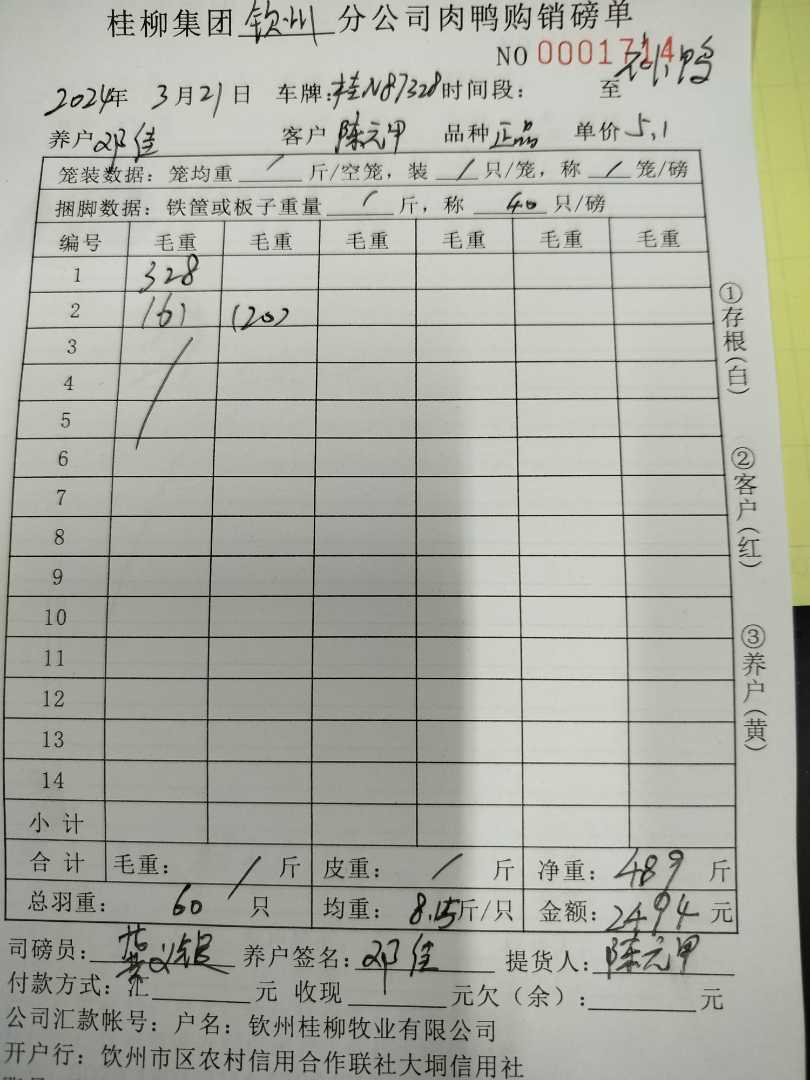 桂柳集团钦州分公司肉鸭购销磅单
NO 0001714
2024年 3月21日 车牌:桂N87328 时间段: 至
养户 邓佳 客户 陈元甲 品种 正品 单价 5.1
笼装数据: 笼均重 / 斤/空笼, 装 / 只/笼, 称 / 笼/磅
捆脚数据: 铁筐或板子重量 / 斤, 称 40 只/磅
编号 毛重 毛重 毛重 毛重 毛重 毛重
1 328
2 161 (20)
3
4
5
6
7
8
9
10
11
12
13
14
小计
合计 毛重: / 斤 皮重: / 斤 净重: 489 斤
总羽重: 60 只 均重: 8.15斤/只 金额: 2494 元
司磅员: 养户签名: 邓佳 提货人: 陈元甲
付款方式: 汇 元 收现 元欠(余): 元
公司汇款帐号: 户名: 钦州桂柳牧业有限公司
开户行: 钦州市区农村信用合作联社大垌信用社
①存根(白)
②客户(红)
③养户(黄)